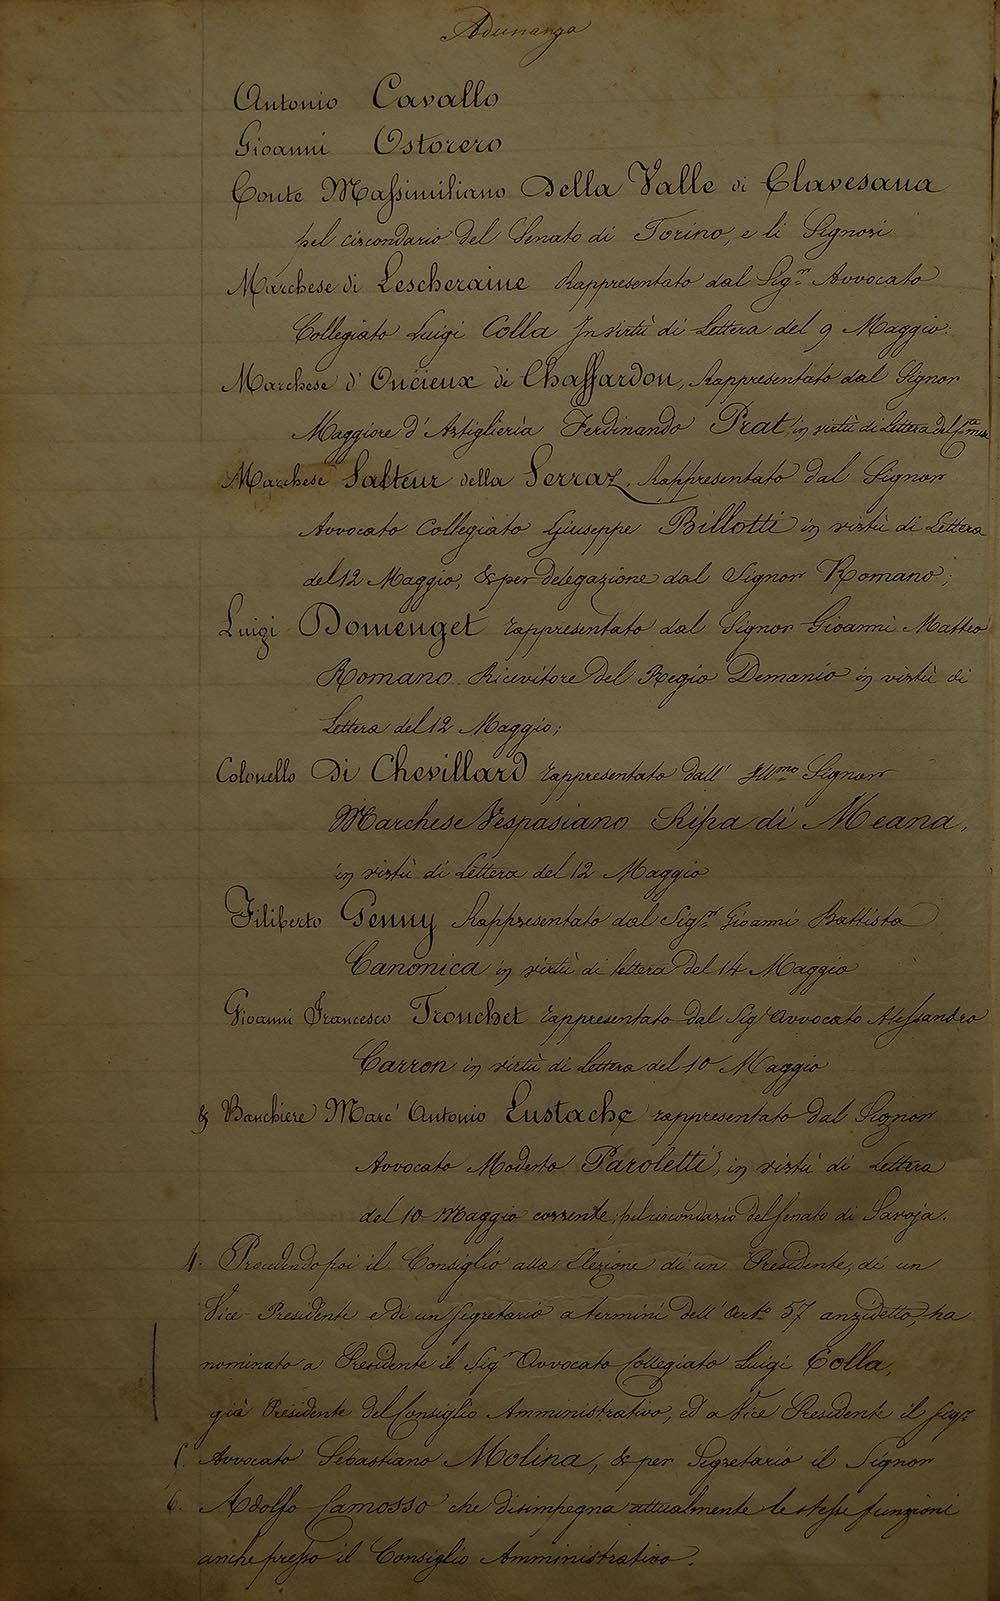 Adunanza
Antonio Cavallo
Gioanni Ostorero
Conte Massimiliano Della Valle di Clavesana
pel circondario del Senato di Torino, e li Signori
Marchese di Lescheraine Rappresentato dal Sig.r Avvocato
Collegiato Luigi Colla In virtù di Lettera del 9 Maggio.
Marchese d'Oncieux di Chaffardon, Rappresentato dal Signor
Maggiore d'Artiglieria Ferdinando Prat, in virtù di Lettera del
Marchese Salteur della Serraz, Rappresentato dal Signor
Avvocato Collegiato Giuseppe Billotti in virtù di Lettera
del 12 Maggio, & per delegazione dal Signor Romano;
Luigi Domenget rappresentato dal Signor Gioanni Matteo
Romano Ricevitore del Regio Demanio in virtù di
Lettera del 12 Maggio;
Colonello Di Chevillard rappresentato dall' Ill.mo Signor
Marchese Vespasiano Ripa di Meana,
in virtù di Lettera del 12 Maggio
Filiberto Genny Rappresentato dal Sig.r Gioanni Battista
Canonica in virtù di lettera del 14 Maggio
Gioanni Francesco Tronchet rappresentato dal Sig.r Avvocato Alessandro
Carron in virtù di Lettera del 10 Maggio
& Banchiere Marc' Antonio Eustache rappresentato dal Signor
Avvocato Modesto Paroletti, in virtù di Lettera
del 10 Maggio corrente; pel circondario del Senato di Savoja.
4. Procedendo poi il Consiglio alla Elezione di un Presidente, di un
Vice-Presidente e di un Segretario a termini dell' Art.o 57 anzidetto, ha
nominato a Presidente il Sig.r Avvocato Collegiato Luigi Colla,
già Presidente del Consiglio Amministrativo, ed a Vice Presidente il Sig.r
5. Avvocato Sebastiano Molina, & per Segretario il Signor
6. Adolfo Camosso che disimpegna attualmente le stesse funzioni
anche presso il Consiglio Amministrativo.